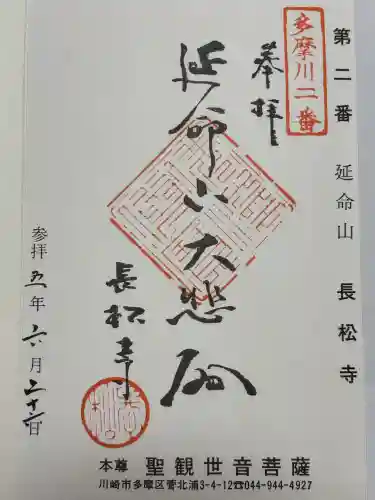 第二番 延命山 長松寺
多摩川二番
奉拝
延命山大悲殿
長松寺
参拝 五年六月二十六日
本尊 聖観世音菩薩
川崎市多摩区菅北浦3-4-12☎044-944-4927